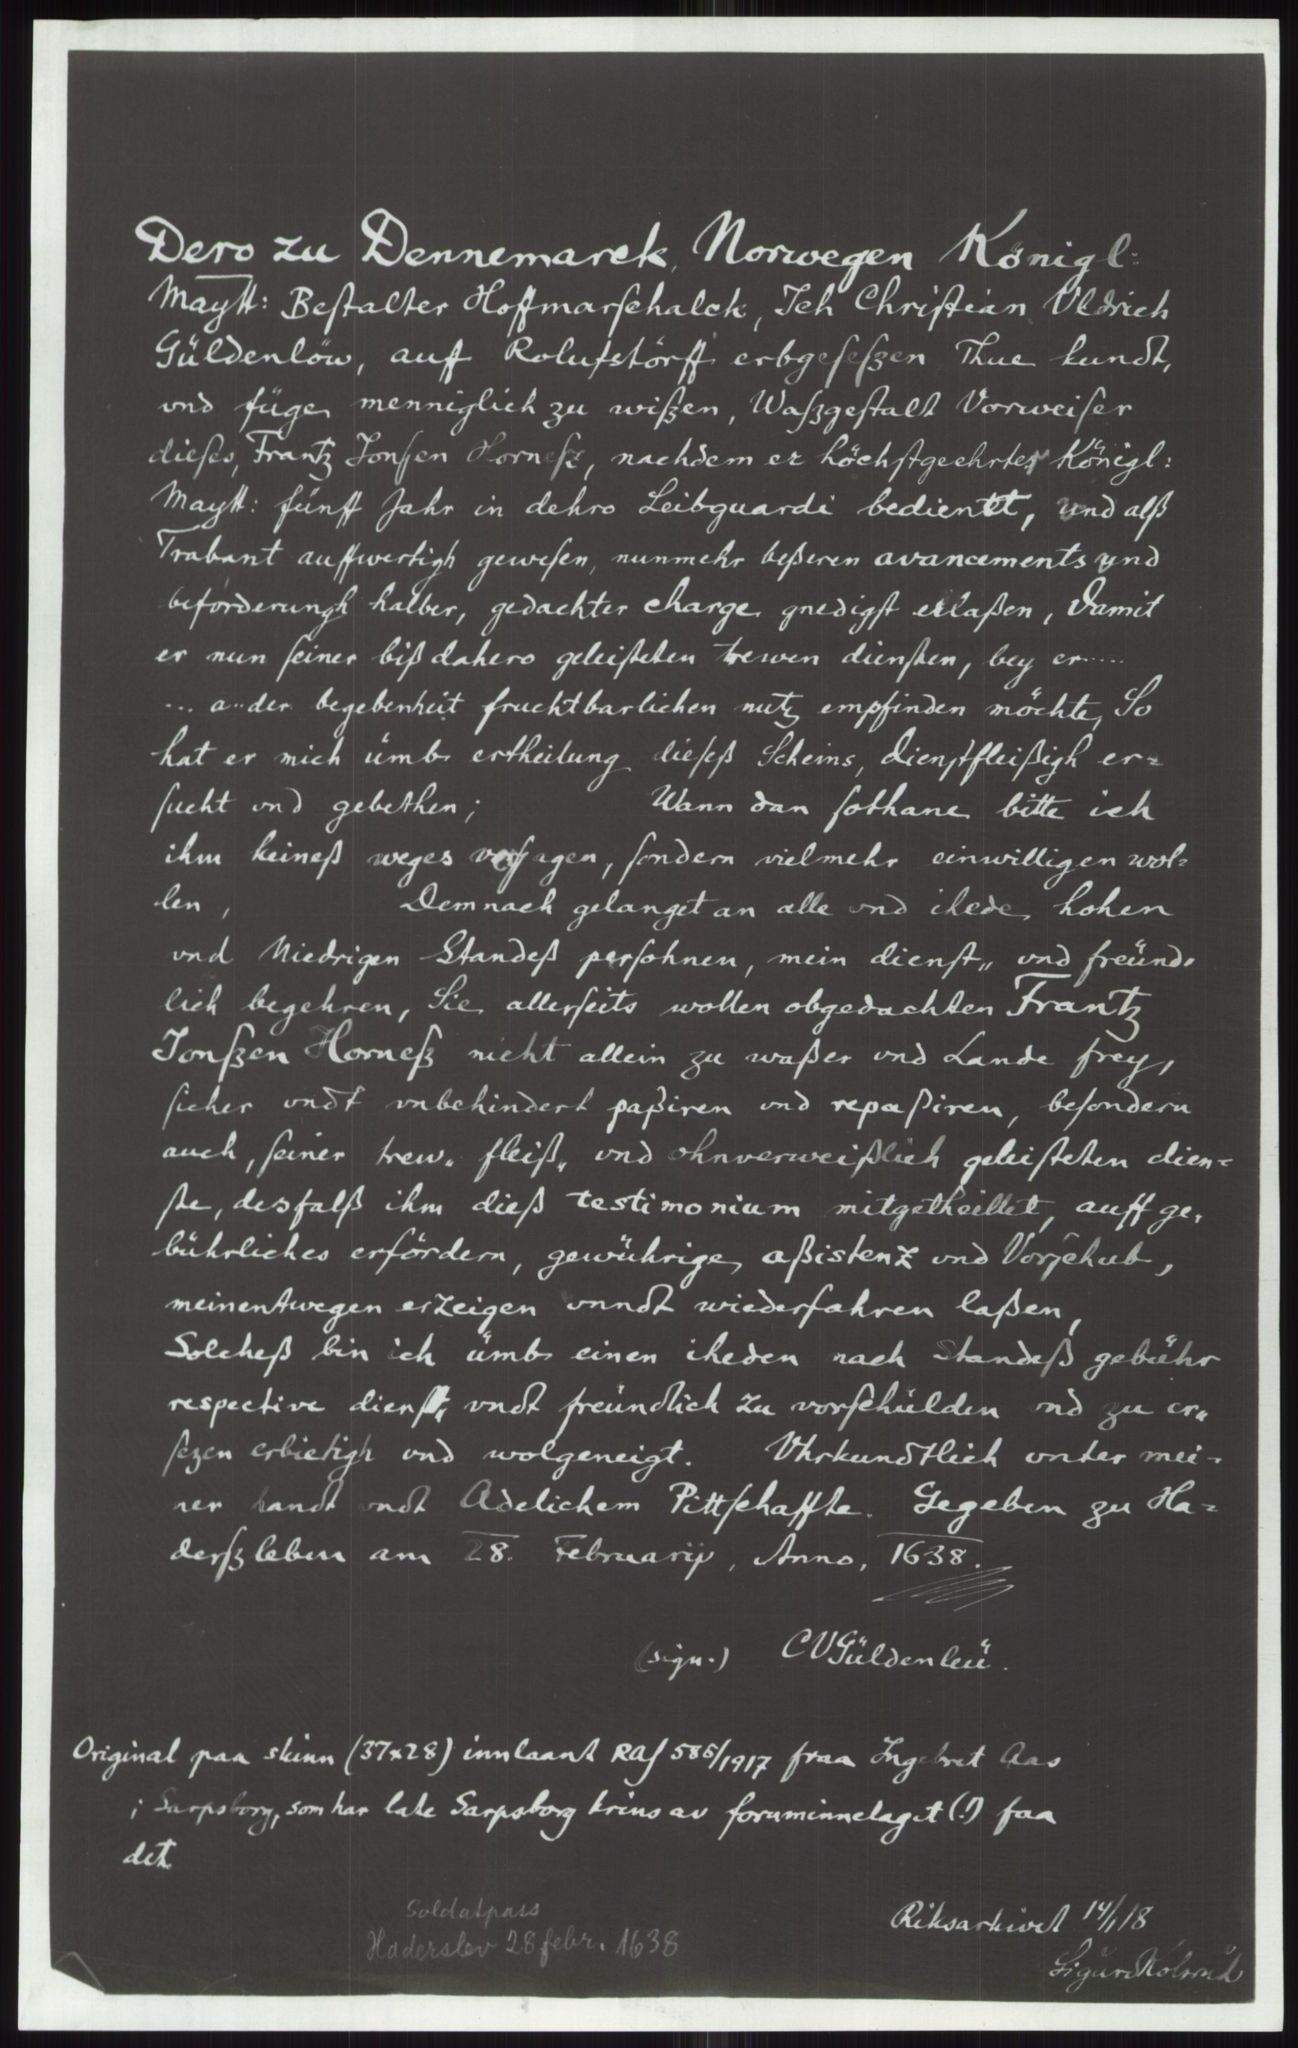 Dero zu Dennemarck, Norwegen Königl:
Maytt: Bestalter Hoffmarschalck, Ich Christian Vldrich
Güldenlöw, auff Rolufstörff erbgeseßzen Thue kundt,
vnd füge menniglich zu wißen, Waßgestalt Vorweiser
dieses, Frantz Jonßen Horneß, nachdem er höchstgeehrter Königl:
Maytt: fünff Jahr in dehro Leibguardi bedientt, und alß
Trabant auffwertigh gewesen, nunmehr beßeren avancements und
beförderungh halber, gedachter charge gnedigst erlaßen, Damit
er nun seiner biß dahero geleisteten trewen diensten, bey er.....
... a..der begebenheit fruchtbarlichen nutz empfinden möchte, So
hat er mich ümb ertheilung dieseß Scheins, dienstfleißigh er=
sucht vnd gebethen; Wann dan sothane bitte ich
ihm keineß weges versagen, sondern vielmehr einwilligen wol=
len, Demnach gelanget an alle vnd ihede hohen
vnd Niedrigen Standeß persohnen, mein dienst„ vnd freünd=
lich begehren, Sie allerseits wollen obgedachten Frantz
Jonßzen Horneß nicht allein zu waßer vnd Lande frey,
sicher vndt vnbehindert paßiren vnd repaßiren, besondern
auch, seiner trew„ fleiß„ vnd ohnverweißlich geleisteten dien=
ste, desfalß ihm dieß testimonium mitgetheillet, auff ge=
bührliches erfördern, gewührige aßistenz vnd Vorschub,
meinentwegen erzeigen vnndt wiederfahren laßen,
Solcheß bin ich ümb einen iheden nach Standeß gebühr
respective dienst„ vndt freündlich zu vorschülden vnd zu er„
sezen erbietigh vnd wolgeneigt. Vhrkundtlich vnter mei=
ner handt vndt Adelichem Pittschaffte. Gegeben zu Ha=
derßleben am 28. Februarij, Anno, 1638.
(sign.) CVGüldenleü.
Original paa skinn (37x28) innlaant RAJ 585/1917 fraa Ingebret Aas
i Sarpsborg, som har late Sarpsborg krins av fornminnelaget (!) faa
det
Soldatpass
Haderslev 28 febr. 1638
Riksarkivet 14/1 18
Sigurd Kolsrud